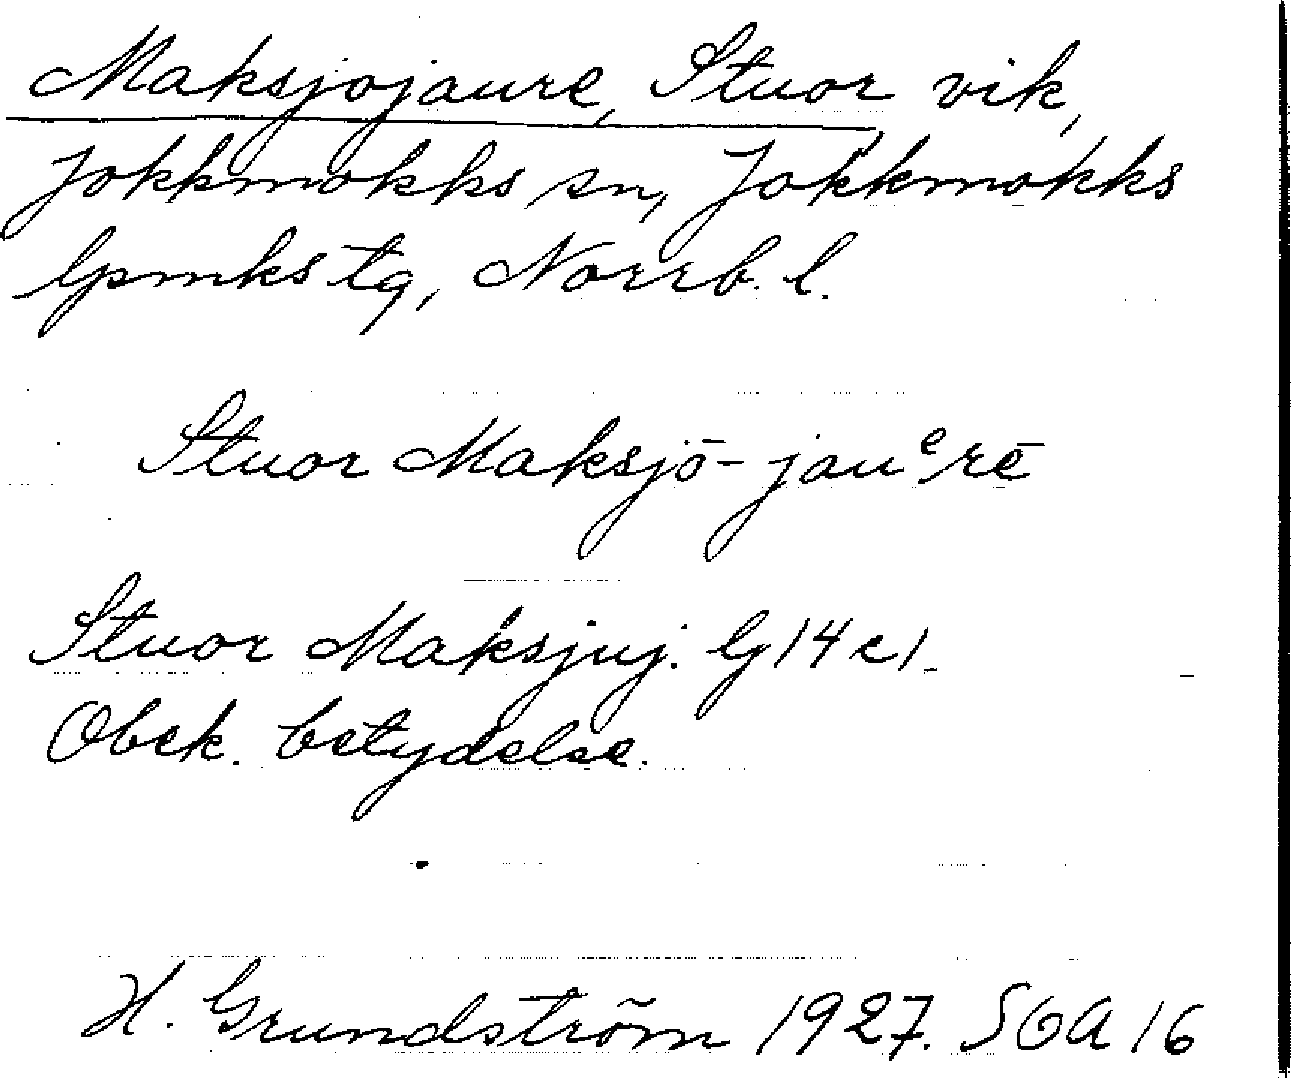 Maksjojaure, Stuor vik,
Jokkmokks sn, Jokkmokks
lpmks tg, Norrb. l.
Stuor Maksjō-jauᵉ/rē
Stuor Maksjuj. lg 14 c 1.
Obek. betydelse.
H. Grundström 1927. SOA 16